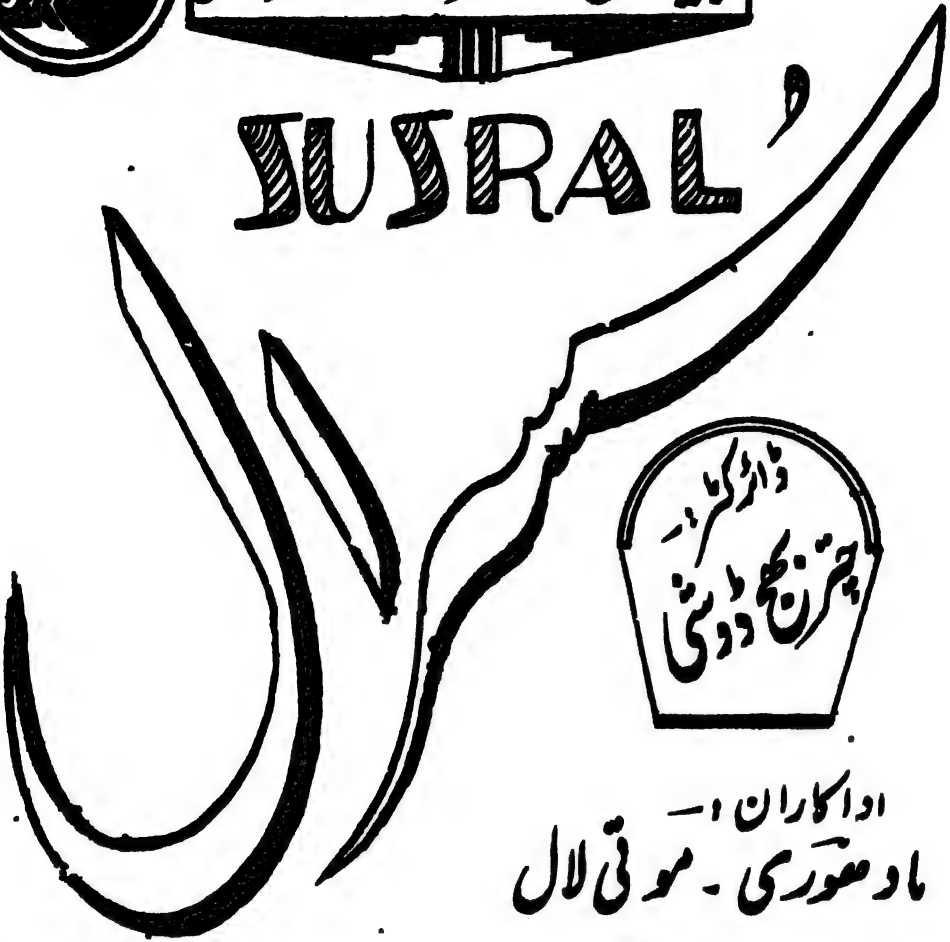 SUSRAL'
سسرال
ڈائرکٹر:-
چترنبھج ڈوشی
اداکاران :-
مادھوری - موتی لال